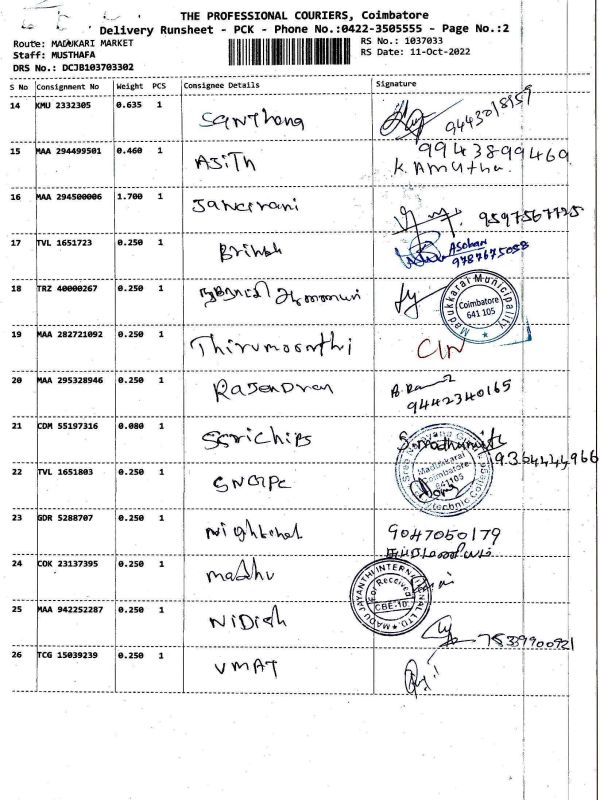 THE PROFESSIONAL COURIERS, Coimbatore
Delivery Runsheet - PCK - Phone No.:0422-3505555 - Page No.:2
Route: MADUKARI MARKET
RS No.: 1037033
Staff: MUSTHAFA
RS Date: 11-Oct-2022
DRS No.: DCJB103703302
S No Consignment No Weight PCS Consignee Details Signature
14 KMU 2332305 0.635 1 Santhana 9443018959
15 MAA 294499501 0.460 1 AJiTh 9943899469
K. Amutha
16 MAA 294500006 1.700 1 9597567725
17 TVL 1651723 0.250 1 ASohan
9787675058
18 TRZ 40000267 0.250 1 Madukkarai Municipality Coimbatore 641 105
19 MAA 282721092 0.250 1 Thirumoorthi
20 MAA 295328946 0.250 1 RAJENDran
9442340165
21 CDM 55197316 0.080 1
22 TVL 1651803 0.250 1 SNGPC Madukkarai Coimbatore-641105
23 GDR 5288707 0.250 1 9047050179
24 COK 23137395 0.250 1 madhu MADU JAYANTHI INTERNATIONAL LTD. For Received CBE-10
25 MAA 942252287 0.250 1 NiDish 7539900921
26 TCG 15039239 0.250 1 VMAT